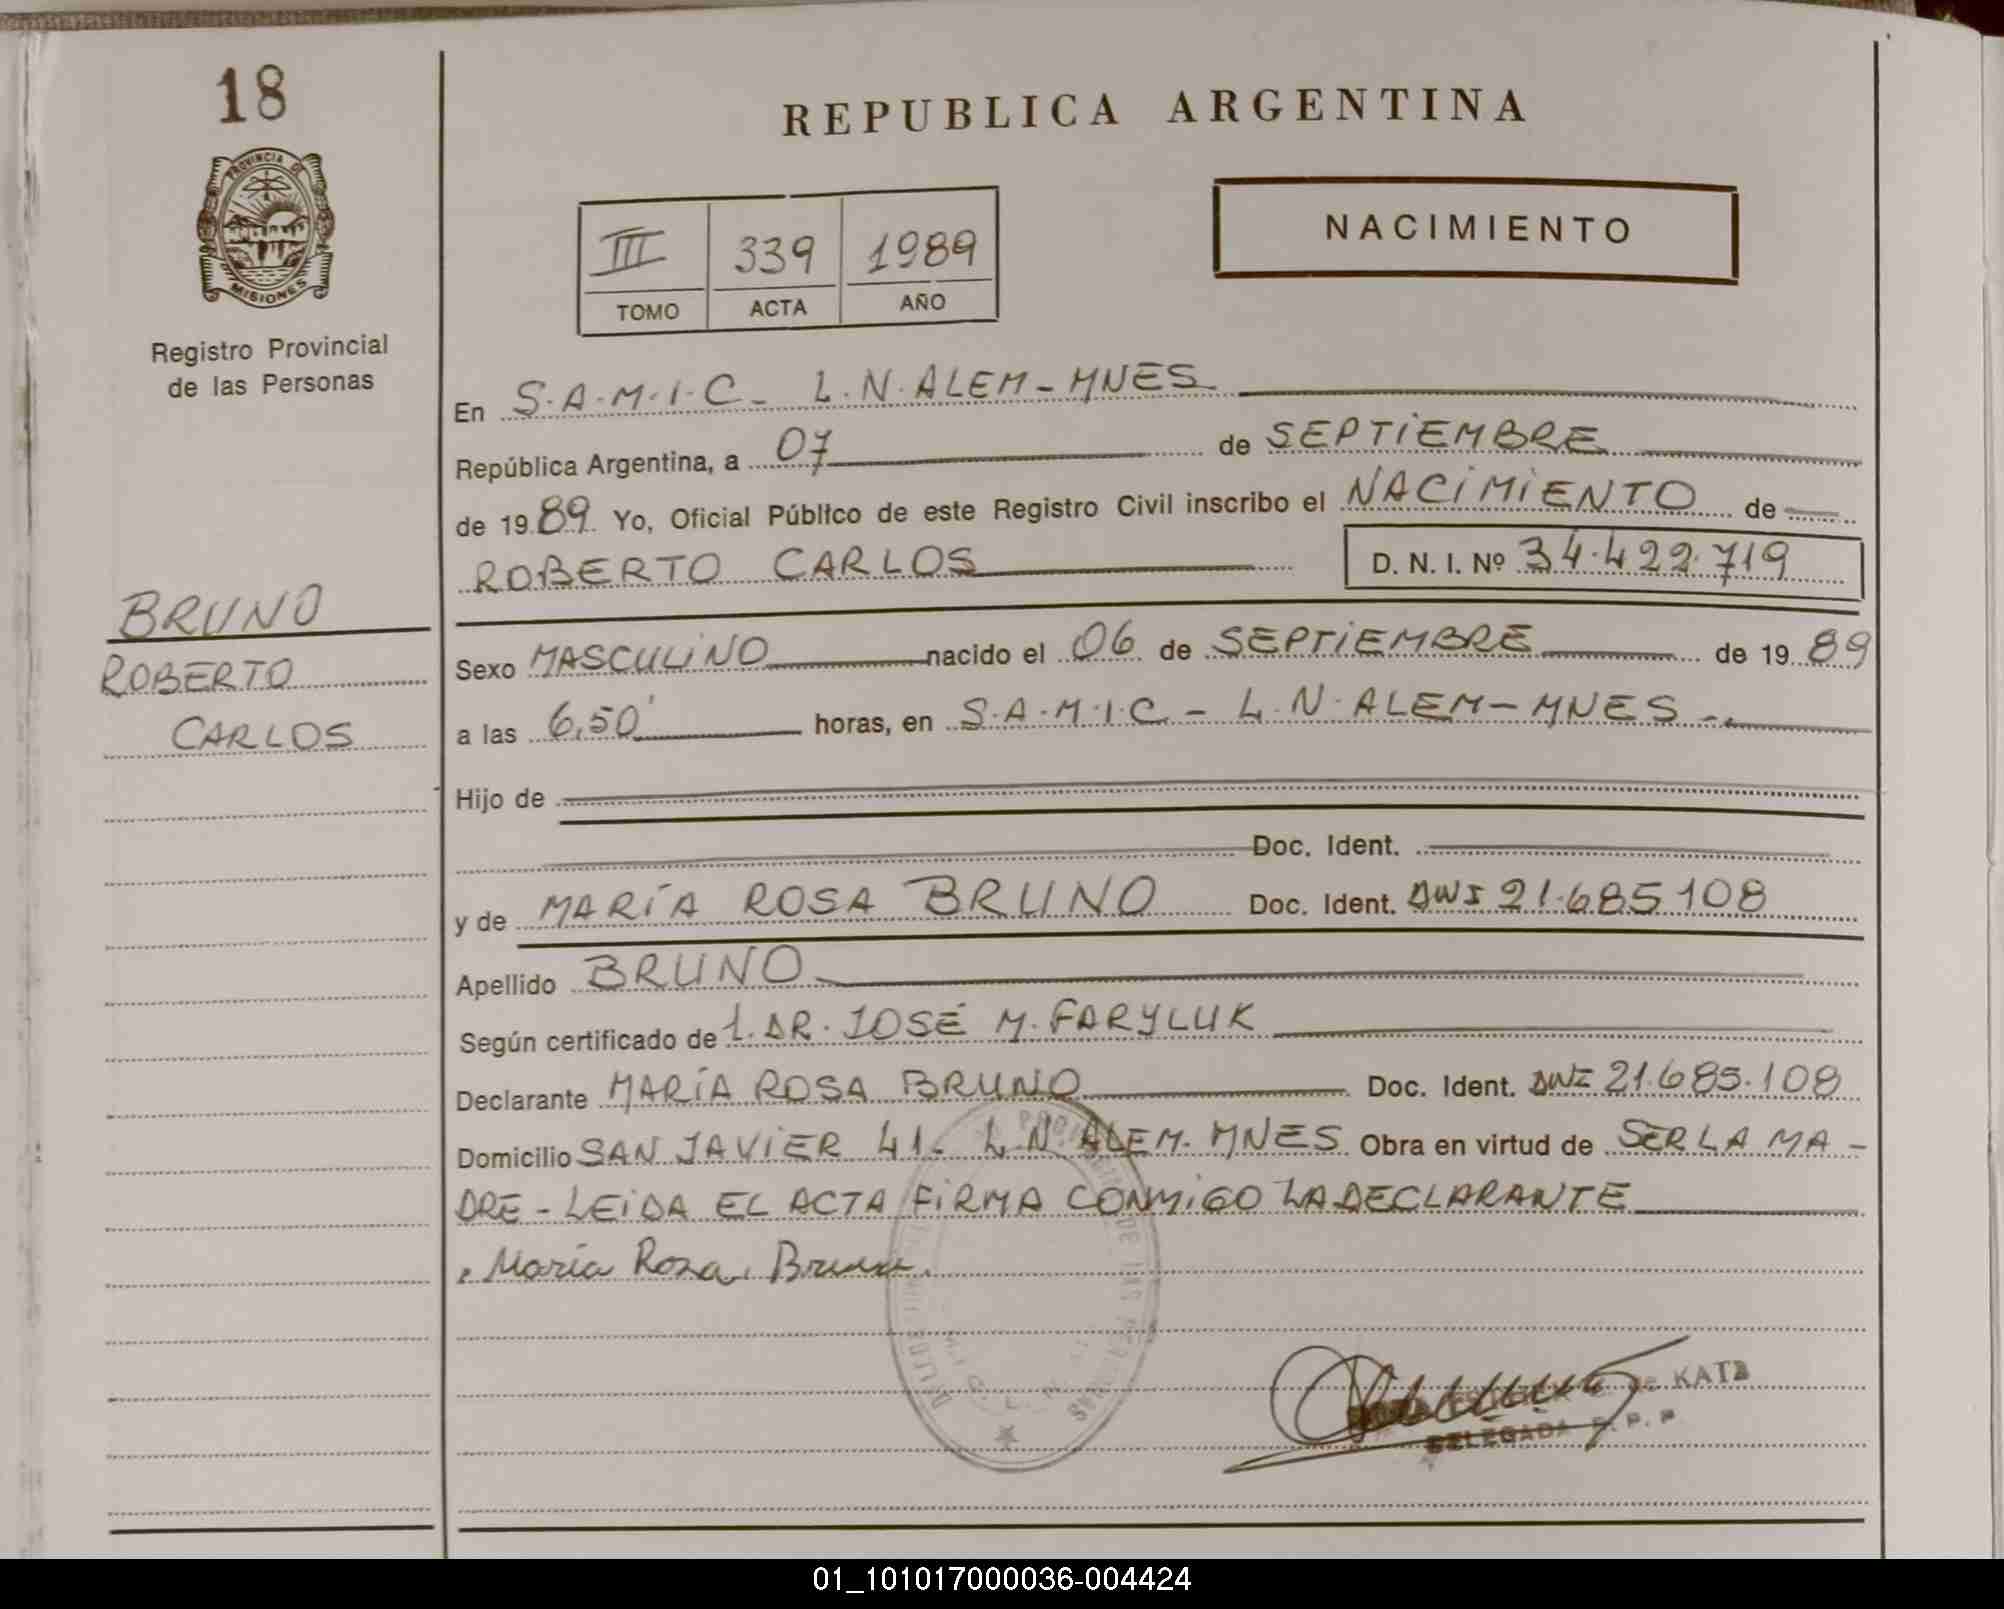 18
PROVINCIA DE
MISIONES
Registro Provincial
de las Personas
BRUNO
ROBERTO
CARLOS
REPUBLICA ARGENTINA
III 339 1989
TOMO ACTA AÑO
NACIMIENTO
En S.A.M.I.C_ L.N.ALEM_MNES
República Argentina, a 07 de SEPTIEMBRE
de 1989 Yo, Oficial Público de este Registro Civil inscribo el NACIMIENTO de
ROBERTO CARLOS D. N. I. Nº 34.422.719
Sexo MASCULINO nacido el 06 de SEPTIEMBRE de 1989
a las 6,50' horas, en S.A.M.I.C - L.N.ALEM-MNES -
Hijo de
Doc. Ident.
y de MARÍA ROSA BRUNO Doc. Ident. DNI 21.685.108
Apellido BRUNO
Según certificado de 1. DR. JOSÉ M. FARYLUK
Declarante MARÍA ROSA BRUNO Doc. Ident. DNI 21.685.108
Domicilio SAN JAVIER 41. L.N.ALEM. MNES Obra en virtud de SER LA MA-
DRE - LEIDA EL ACTA FIRMA CONMIGO LA DECLARANTE
María Rosa Bruno
de KATZ
DELEGADA R. P. P.
01_101017000036-004424